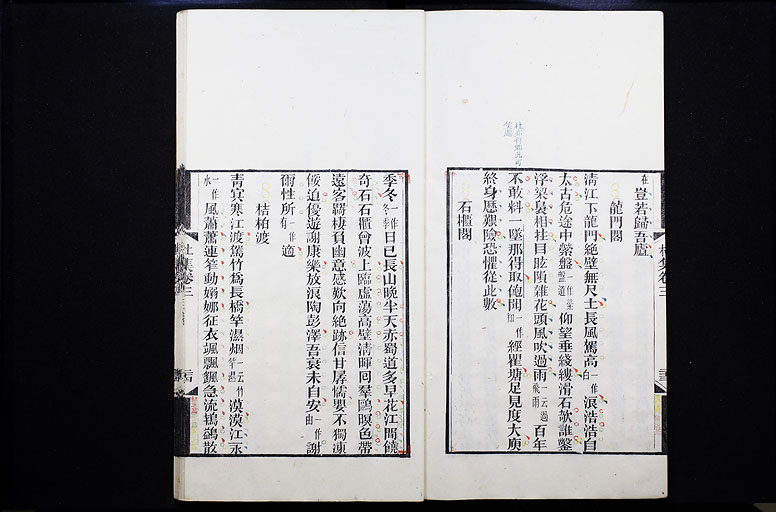 在豈若歸吾廬
龍門閣
清江下龍門絕壁無尺土長風駕高一作白浪浩浩自
太古危途中縈盤一作縈盤道仰望垂綫縷滑石欹誰鑿
浮梁裊相拄目眩隕雜花頭風吹過雨一云過飛雨百年
不敢料一墜那得取飽聞一作知經瞿塘足見度大庾
終身歷艱險恐懼從此數
石櫃閣
季冬一作冬季日已長山晚半天赤蜀道多早花江間饒
奇石石櫃曾波上臨虛蕩高壁清暉囘羣鷗暝色帶
遠客羇棲負幽意感歎向絕跡信甘孱懦嬰不獨凍
餒迫優遊謝康樂放浪陶彭澤吾衰未自安一作由謝
爾性所一作有適
桔柏渡
青冥寒江渡駕竹爲長橋竿濕烟一云竹竿濕漠漠江永
一作水風蕭蕭連笮動嫋娜征衣颯飄飖急流鴇鷁散
杜集卷三
杜集卷三